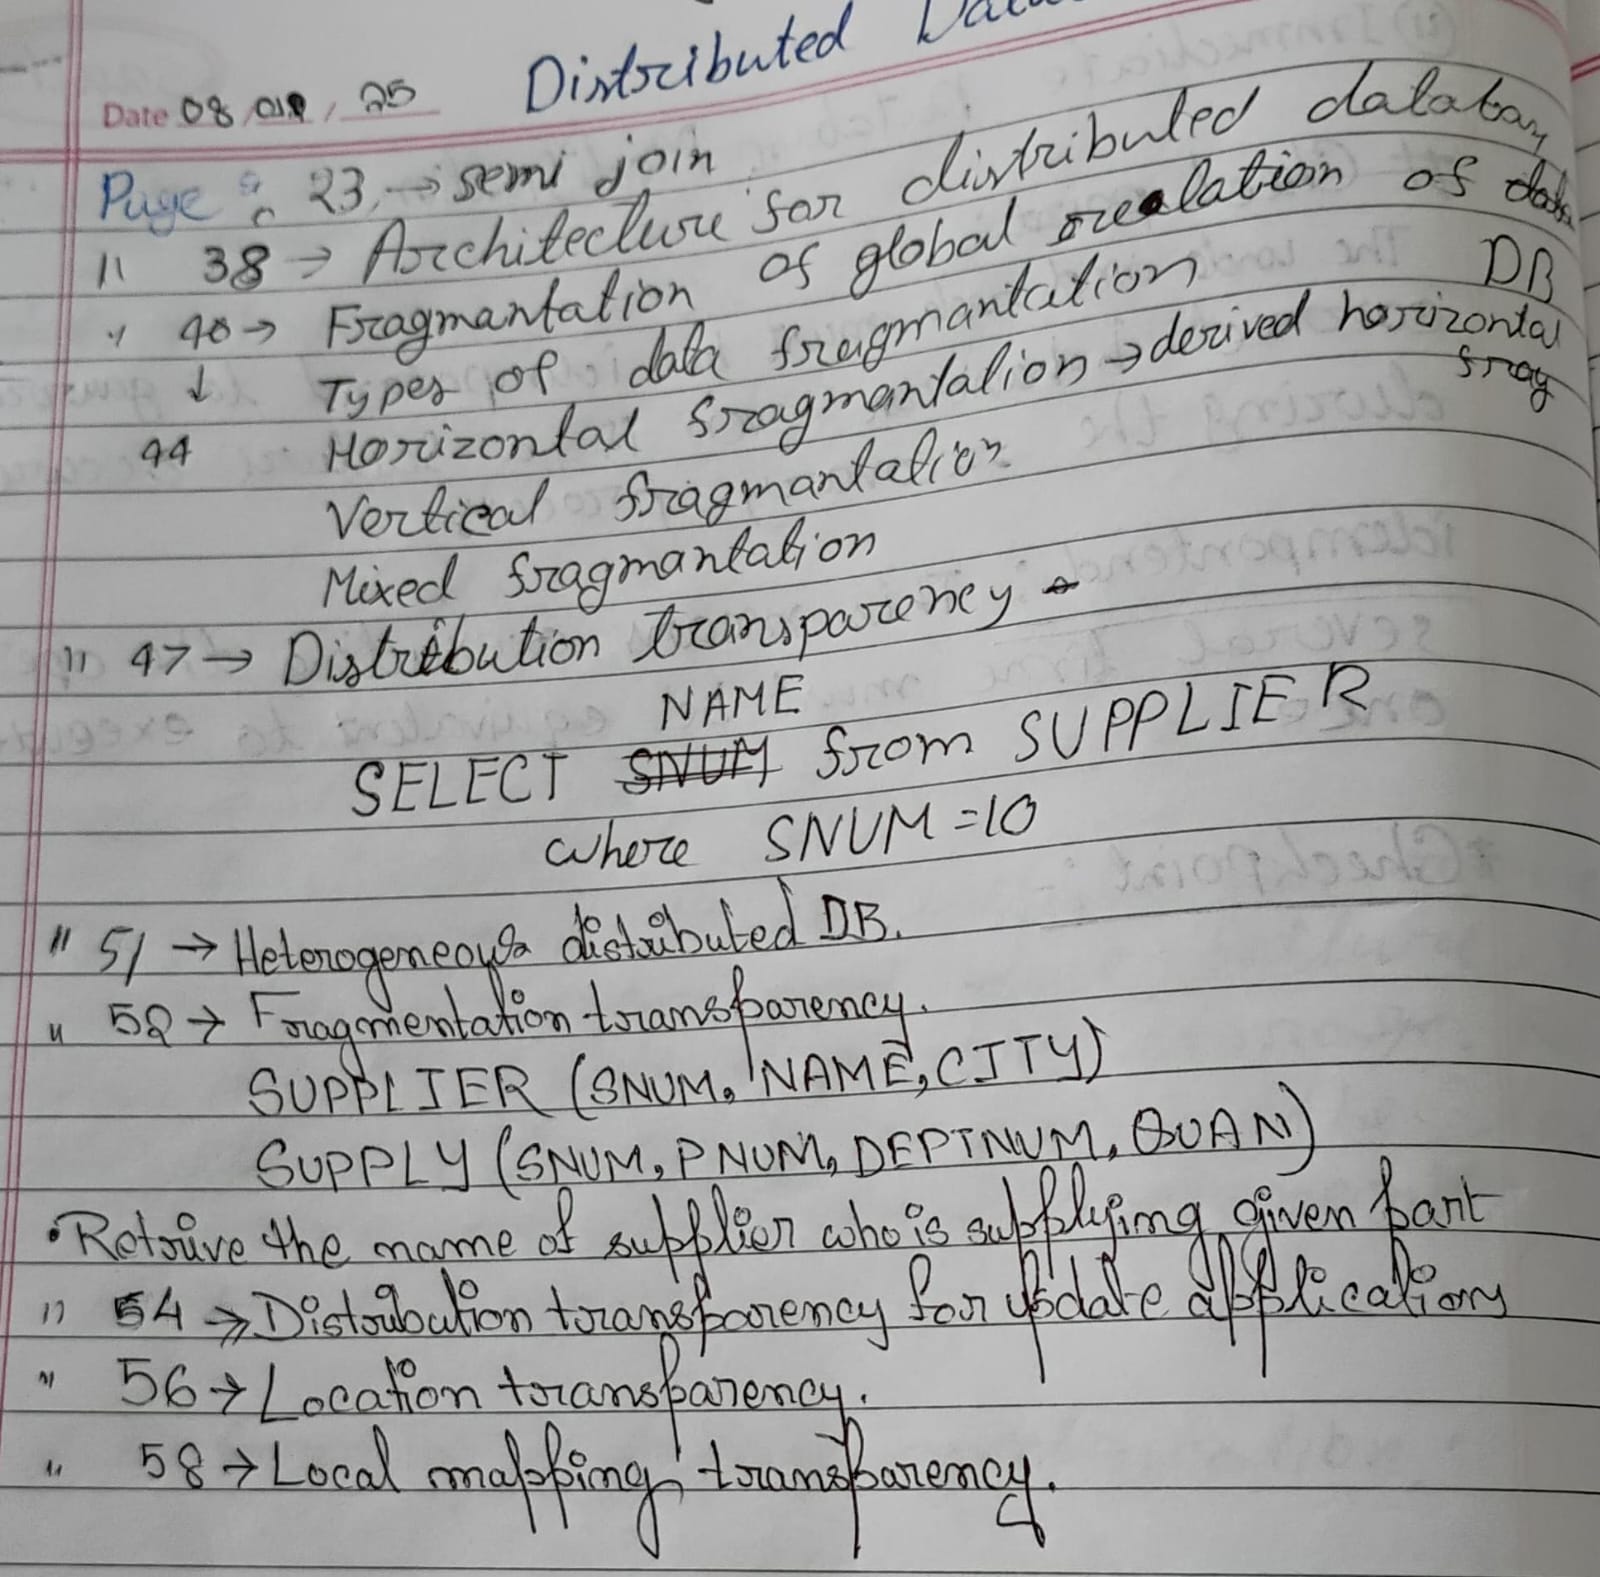 Distributed
Date 08 / 01 / 25
Page : 23 → semi join
11 38 → Architecture for distributed databas
" 40 → Fragmantation of global realation of data
↓ Types of data fragmantation DB
44 Horizontal fragmantation → derived horizontal frag
Vertical fragmantation
Mixed fragmantation
11 47 → Distribution transparency
NAME
SELECT SNUM from SUPPLIER
where SNUM = 10
" 51 → Heterogeneous distributed DB.
" 52 → Fragmentation transparency.
SUPPLIER (SNUM, NAME, CITY)
SUPPLY (SNUM, PNUM, DEPTNUM, QUAN)
• Retrive the name of supplier who is supplying given part
11 54 → Distribution transparency for update applications
" 56 → Location transparency.
" 58 → Local mapping transparency.